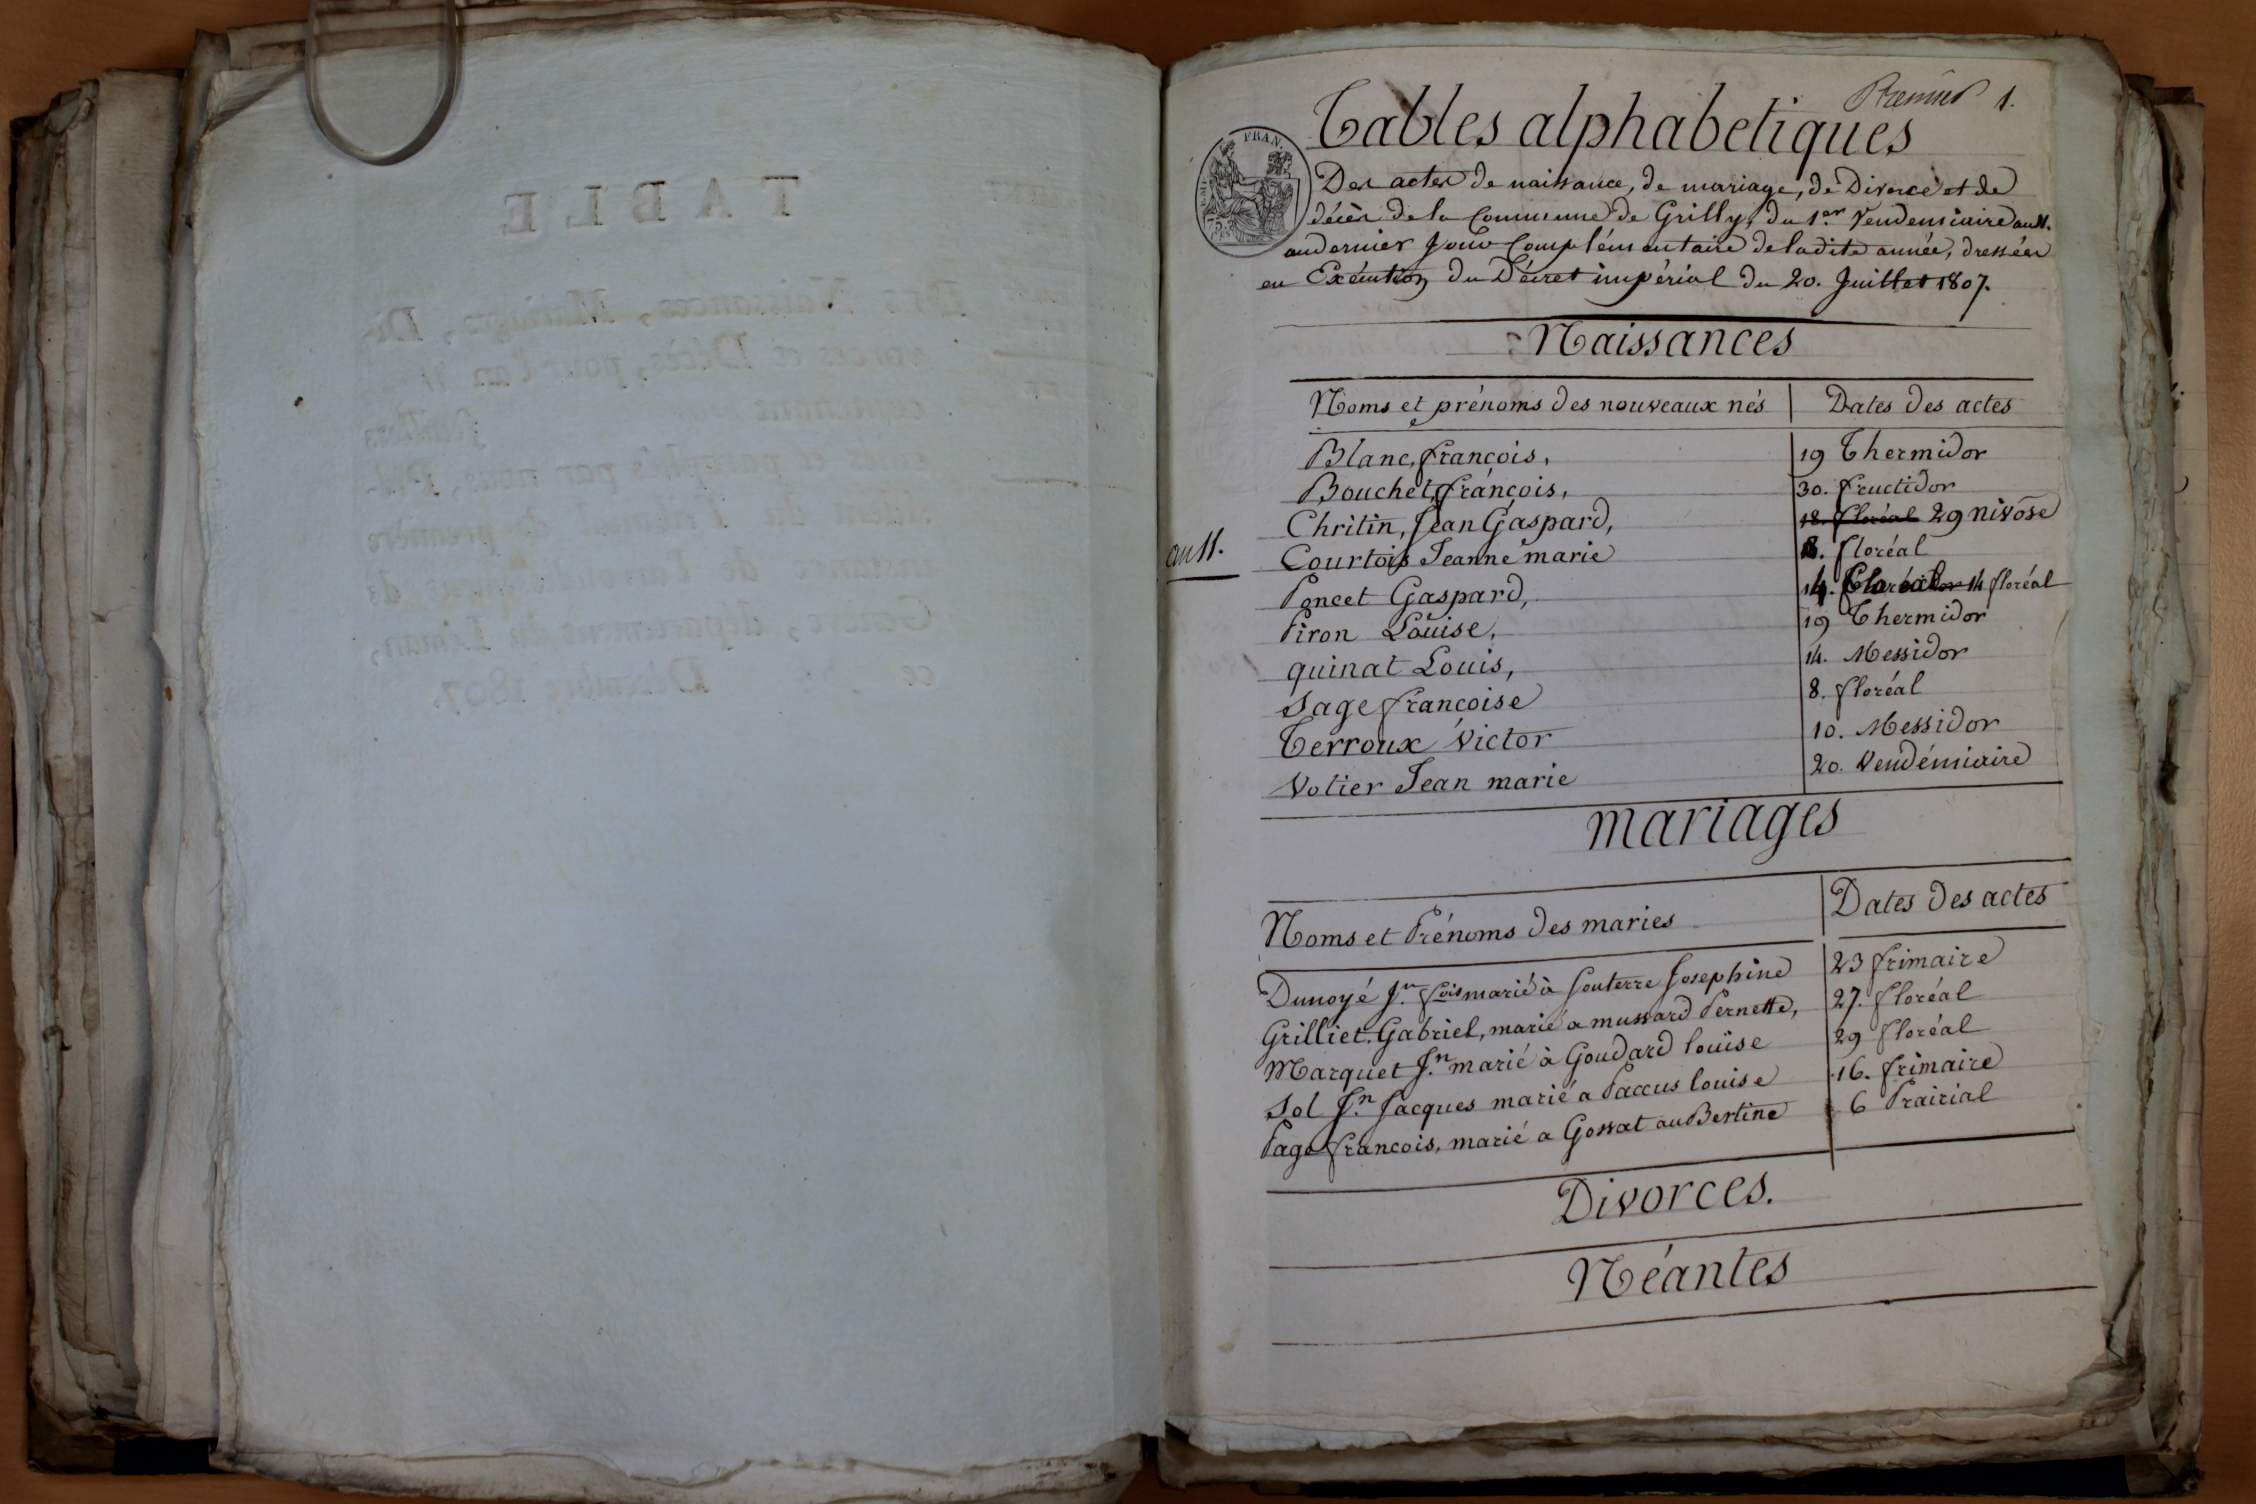 TABLE
Des Naissances, Mariages, Di-
vorces et Décès, pour l'an 11
contenant feuillets
cotés et paraphés par nous, Pré-
sident du Tribunal de première
instance de l'arrondissement de
Genève, département du Léman,
ce Décembre 1807.
Premier 1.
Tables alphabetiques
FRAN.
Des actes de naissance, de mariage, de Divorce et de
décès de la Commune de Grilly, du 1.er Vendemiaire an 11.
au dernier Jour Complémentaire de ladite année, dressées
en Exécution du Décret impérial du 20. Juillet 1807.
Naissances
Noms et prénoms des nouveaux nés | Dates des actes
Blanc, françois, 19 Thermidor
Bouchet, françois, 30. fructidor
Chritin, Jean Gaspard, 18. floréal 29 nivôse
an 11.
Courtois Jeanne marie 8. floréal
Poncet Gaspard, 14. floréal 14 floréal
Piron Louise, 19 Thermidor
quinat Louis, 14. Messidor
Sage françoise 8. floréal
Terroux Victor 10. Messidor
Votier Jean marie 20. Vendémiaire
mariages
Noms et Prénoms des maries | Dates des actes
Dunoyé J.n fois marié à Souterre Josephine 23 frimaire
Grilliet, Gabriel, marié a mussard Pernette, 27. floréal
Marquet J.n marié à Goudard louïse 29 floréal
Sol J.n Jacques marié a Paccus louise 16. frimaire
Page francois, marié a Gossat auBertine 6 Prairial
Divorces.
Néantes